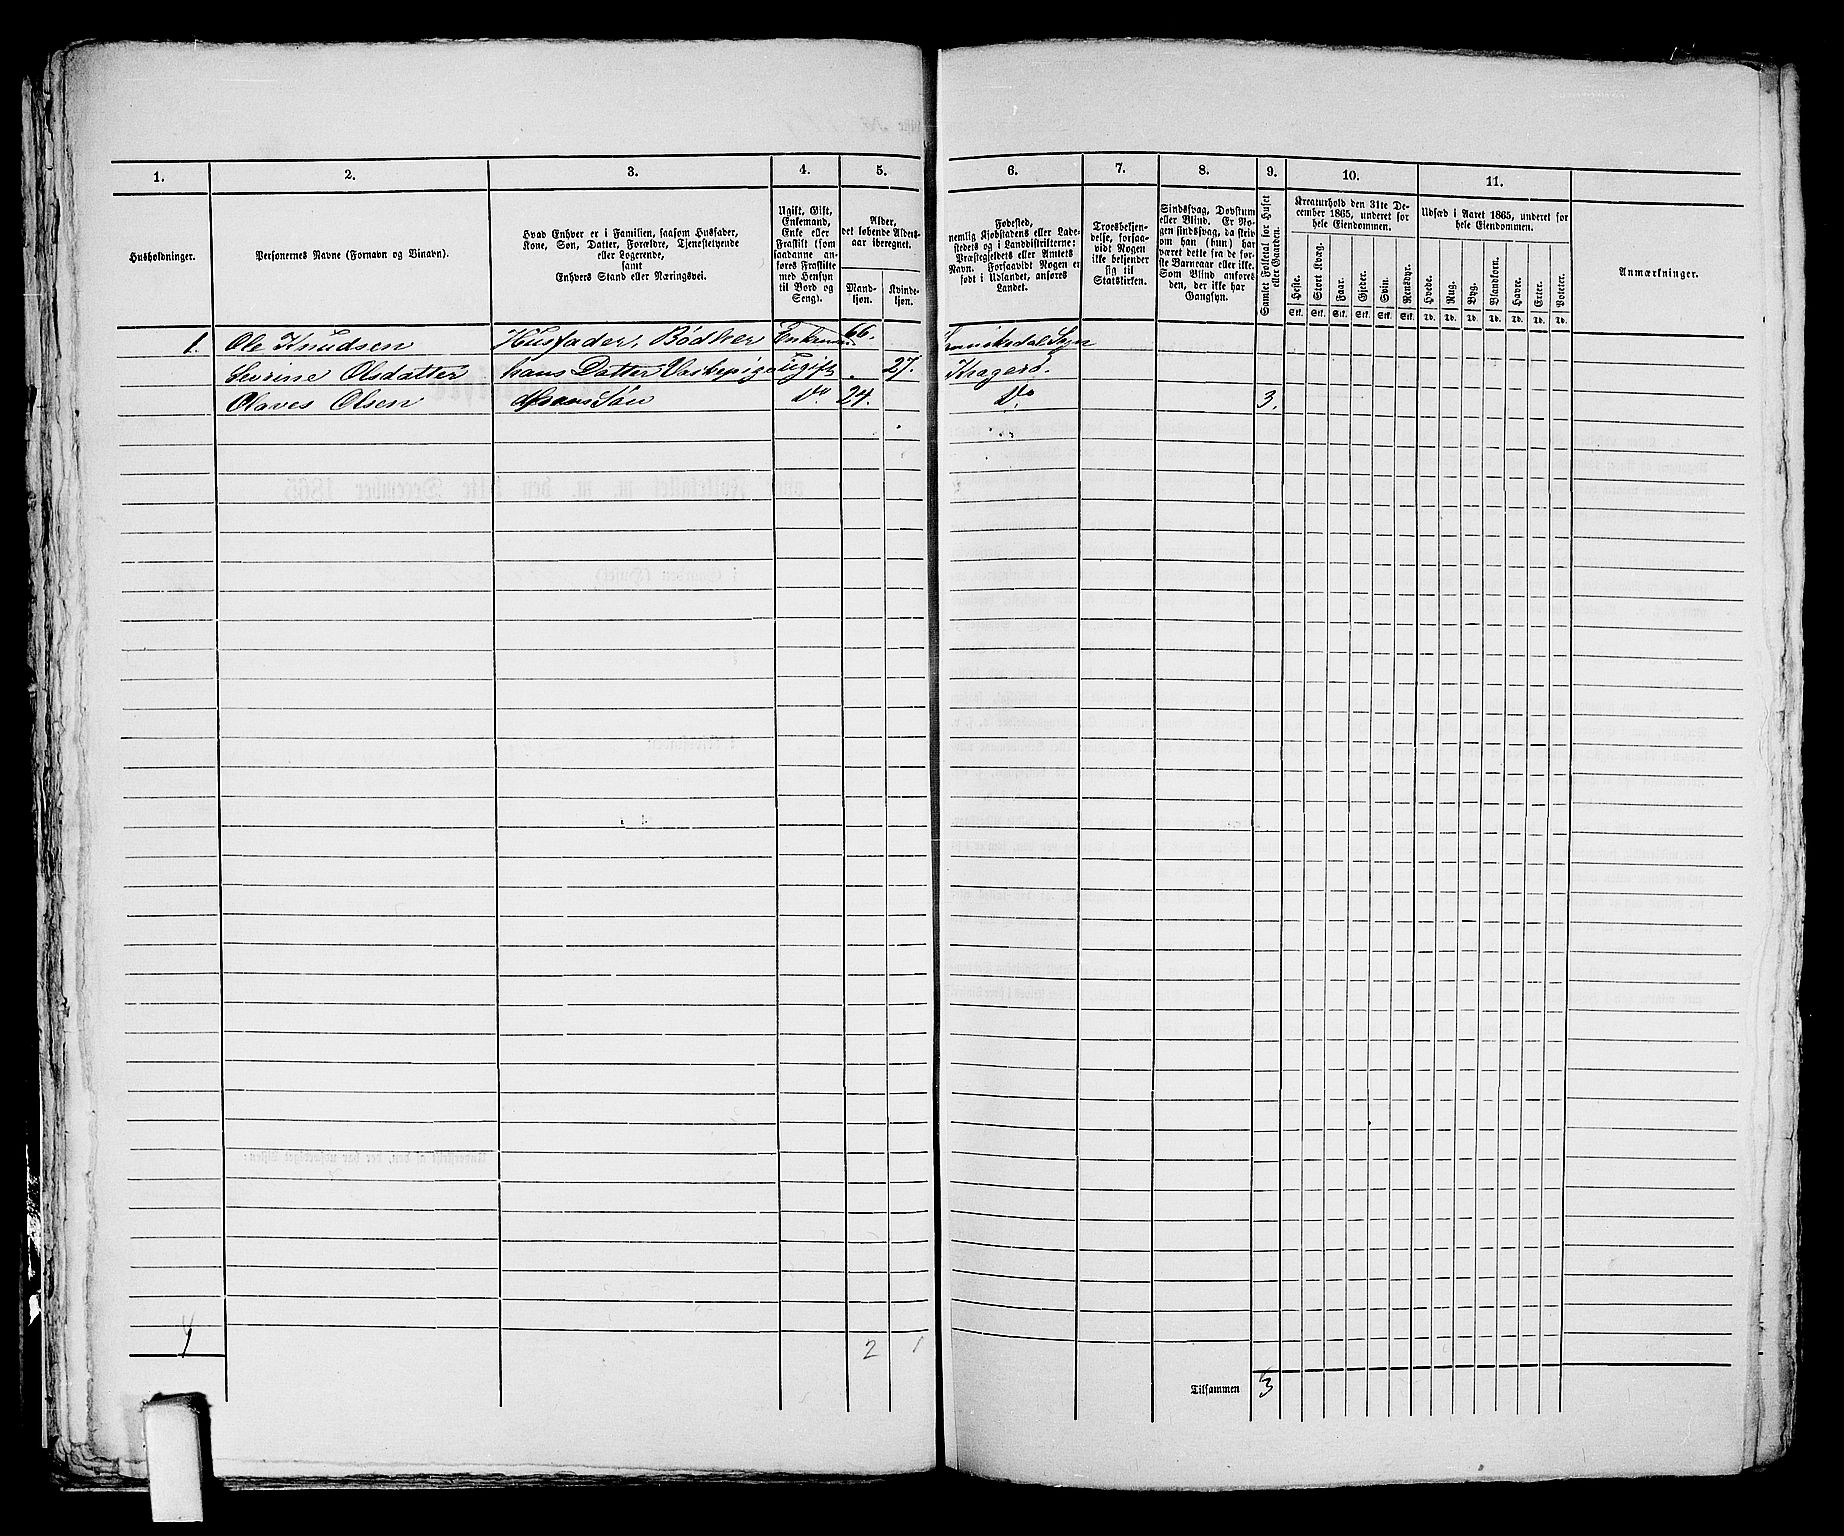 1. 2. 3. 4. 5. 6. 7. 8. 9. 10. 11.
Husholdninger.
Personernes Navne (Fornavn og Vinavn).
Hvad Enhver er i Familien, saasom Husfader,
Kone, Søn, Datter, Forældre, Tjenestetyende
eller Logerende,
samt
Enhvers Stand eller Næringsvei.
Ugift, Gift,
Enkemand,
Enke eller
Fraskilt (som
saadanne an-
føres Fraskilte
med Hensyn
til Bord og
Seng).
Alder,
det løbende Alders-
aar iberegnet.
Mand-
kjøn.
Kvinde-
kjøn.
Fødested,
nemlig Kjøbstadens eller Lade-
stedets og i Landdistrikterne:
Præstegjeldets eller Amtets
Navn. Forsaavidt Nogen er
født i Udlandet, anføres
Landet.
Troesbekjen-
delse, forsaa-
vidt Nogen
ikke bekjender
sig til
Statskirken.
Sindssvag, Døvstum
eller Blind. Er No-
gen sindssvag, da skriv
om han (hun) har
været dette fra de før-
ste Barneaar eller ikke.
Som Blind anføres
den, der ikke har
Gangsyn.
Samlet Folketal for Huset
eller Gaarden.
Kreaturhold den 31te De-
cember 1865, underet for
hele Eiendommen.
Heste. Stort Kvæg. Faar. Gjeder. Sviin. Rensdyr.
Stk. Stk. Stk. Stk. Stk. Stk.
Udsæd i Aaret 1865, underet for
hele Eiendommen.
Hvede. Rug. Byg. Blandkorn. Havre. Erter. Poteter.
Td. Td. Td. Td. Td. Td. Td.
Anmærkninger.
1. Ole Knudsen Husfader, Bødker 66.
Sevrine Olsdatter hans Datter Ugift 27. Kragerø.
Olaves Olsen hans Søn Do. 24. Do. 3.
2 1
Tilsammen 3